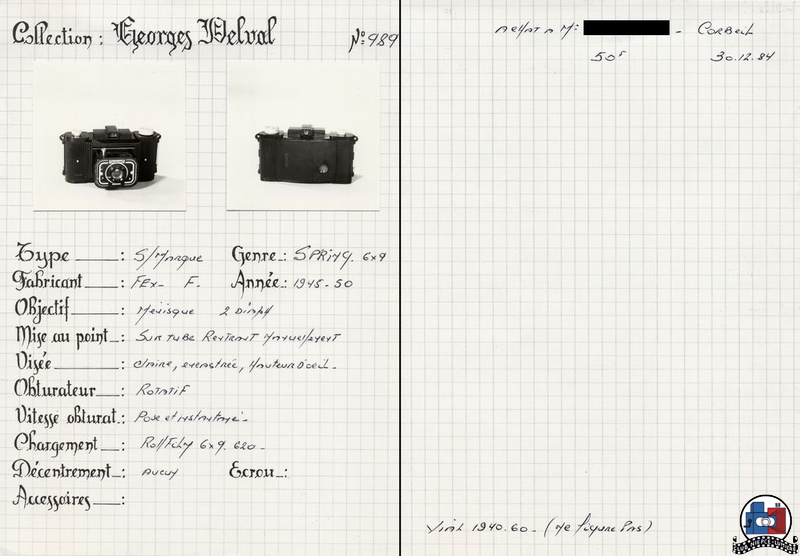 Collection : Georges Delval N°: 989
Type : S/Marque Genre : SPRING. 6x9
Fabricant : FEX - F. Année : 1945-50
Objectif : Ménisque 2 DIAPH
Mise au point : SUR TUBE RENTRANT Manuellement
Visée : claire, excentrée, Hauteur D'oeil -
Obturateur : ROTATIF
Vitesse obturat. : Pose et instantané -
Chargement : Roll Film 6x9. 620 -
Décentrement : AUCUN Ecrou :
Accessoires :
ACHAT A Mr: - CORBEIL
50F 30.12.84
VIAL 1940.60 - (ne figure Pas)